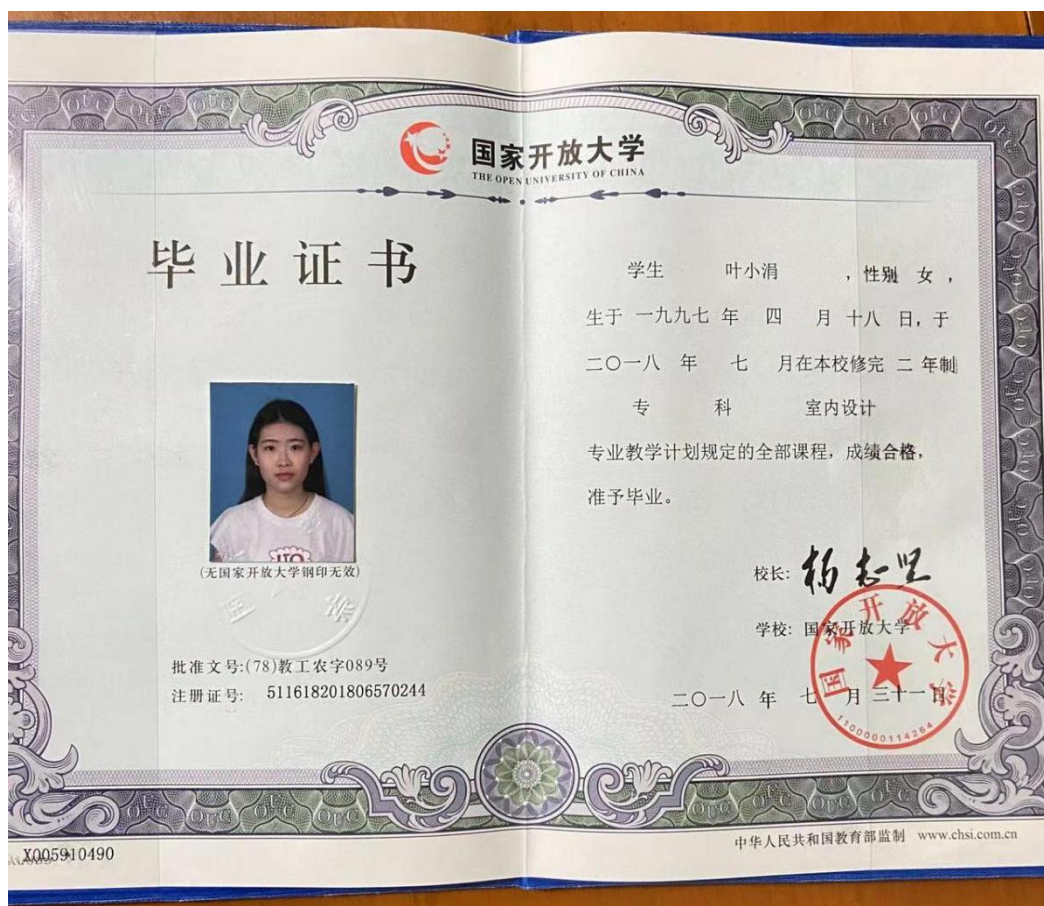 国家开放大学
THE OPEN UNIVERSITY OF CHINA
毕业证书
(无国家开放大学钢印无效)
批准文号:(78)教工农字089号
注册证号: 511618201806570244
学生 叶小涓 ,性别 女 ,
生于 一九九七 年 四 月 十八 日,于
二〇一八 年 七 月在本校修完 二 年制
专 科 室内设计
专业教学计划规定的全部课程,成绩合格,
准予毕业。
校长: 杨志坚
学校: 国家开放大学
二〇一八 年 七 月 三十一 日
国家开放大学
1100000114264
X005910490
中华人民共和国教育部监制 www.chsi.com.cn